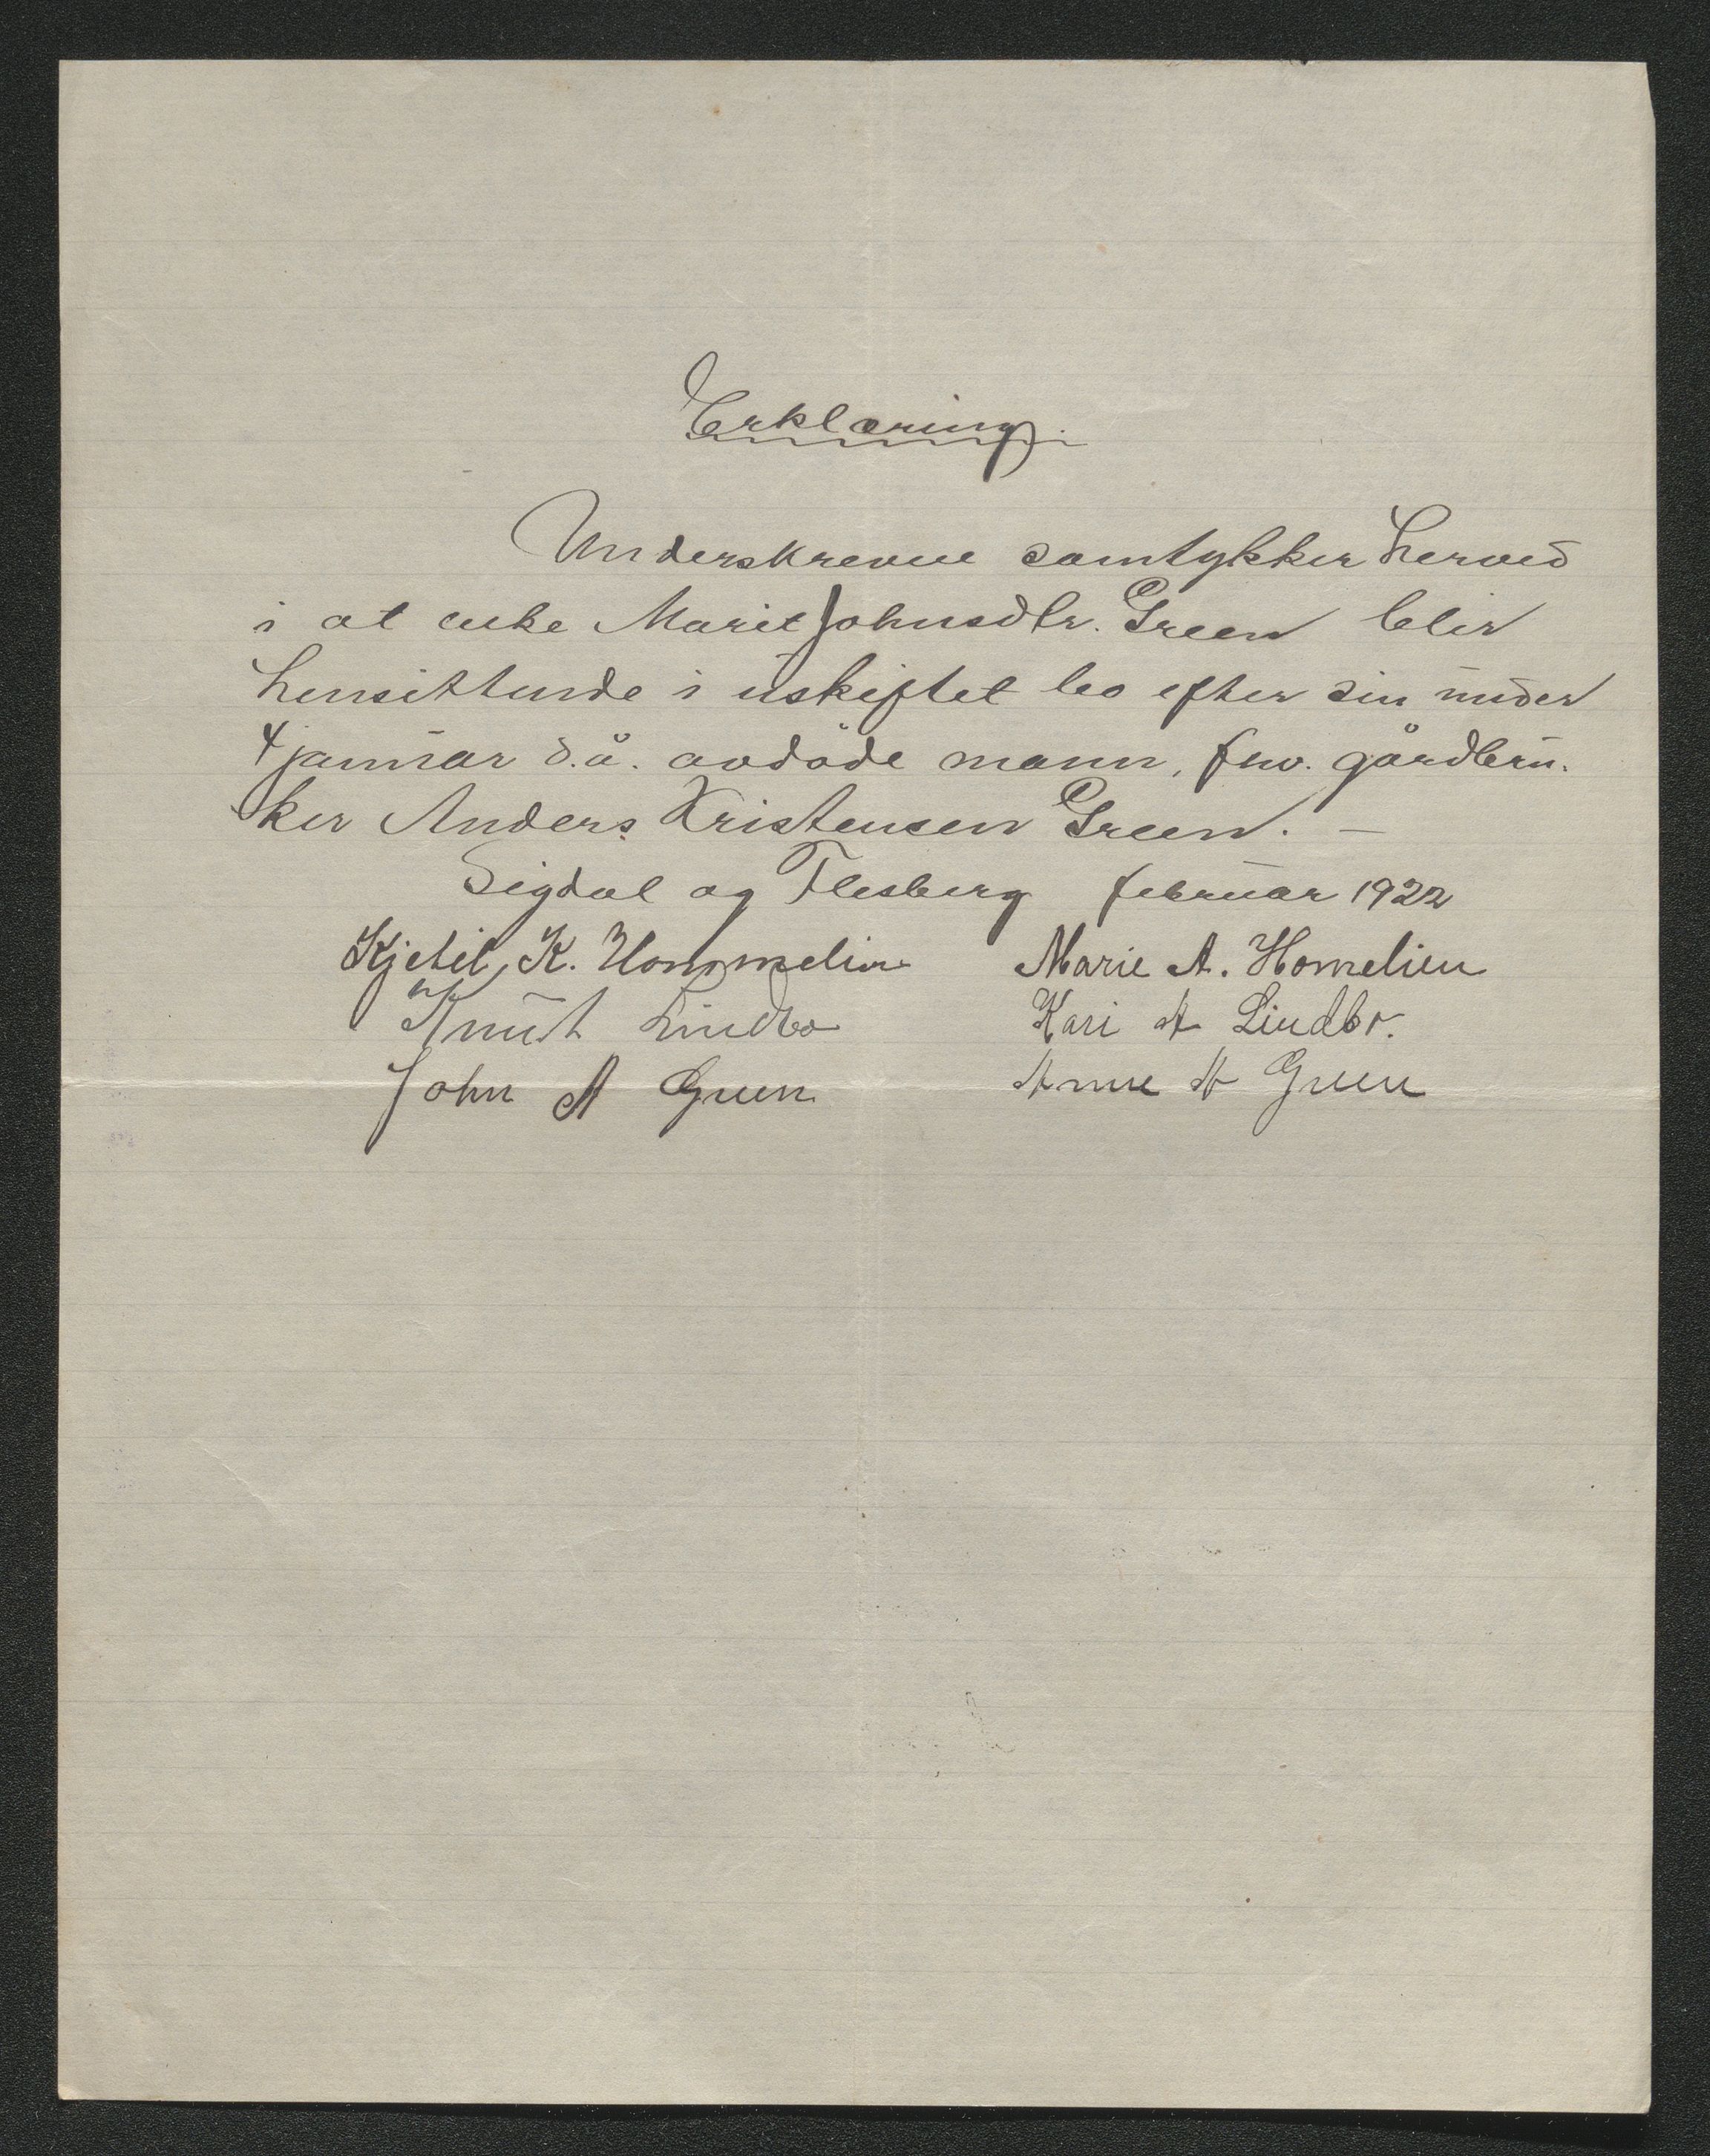 Erklæring.
Underskrevne samtykker herved
i at enke Marit Johnsdtr. Green blir
hensittende i uskiftet bo efter sin under
4 januar d.å. avdöde mann, fhv. gårdbru-
ker Anders Kristensen Green. –
Sigdal og Flesberg februar 1922
Kjetil K. Hommelien Marie A. Homelien
Knut Lindbo Kari A Lindbo.
John A Green Anne A Green